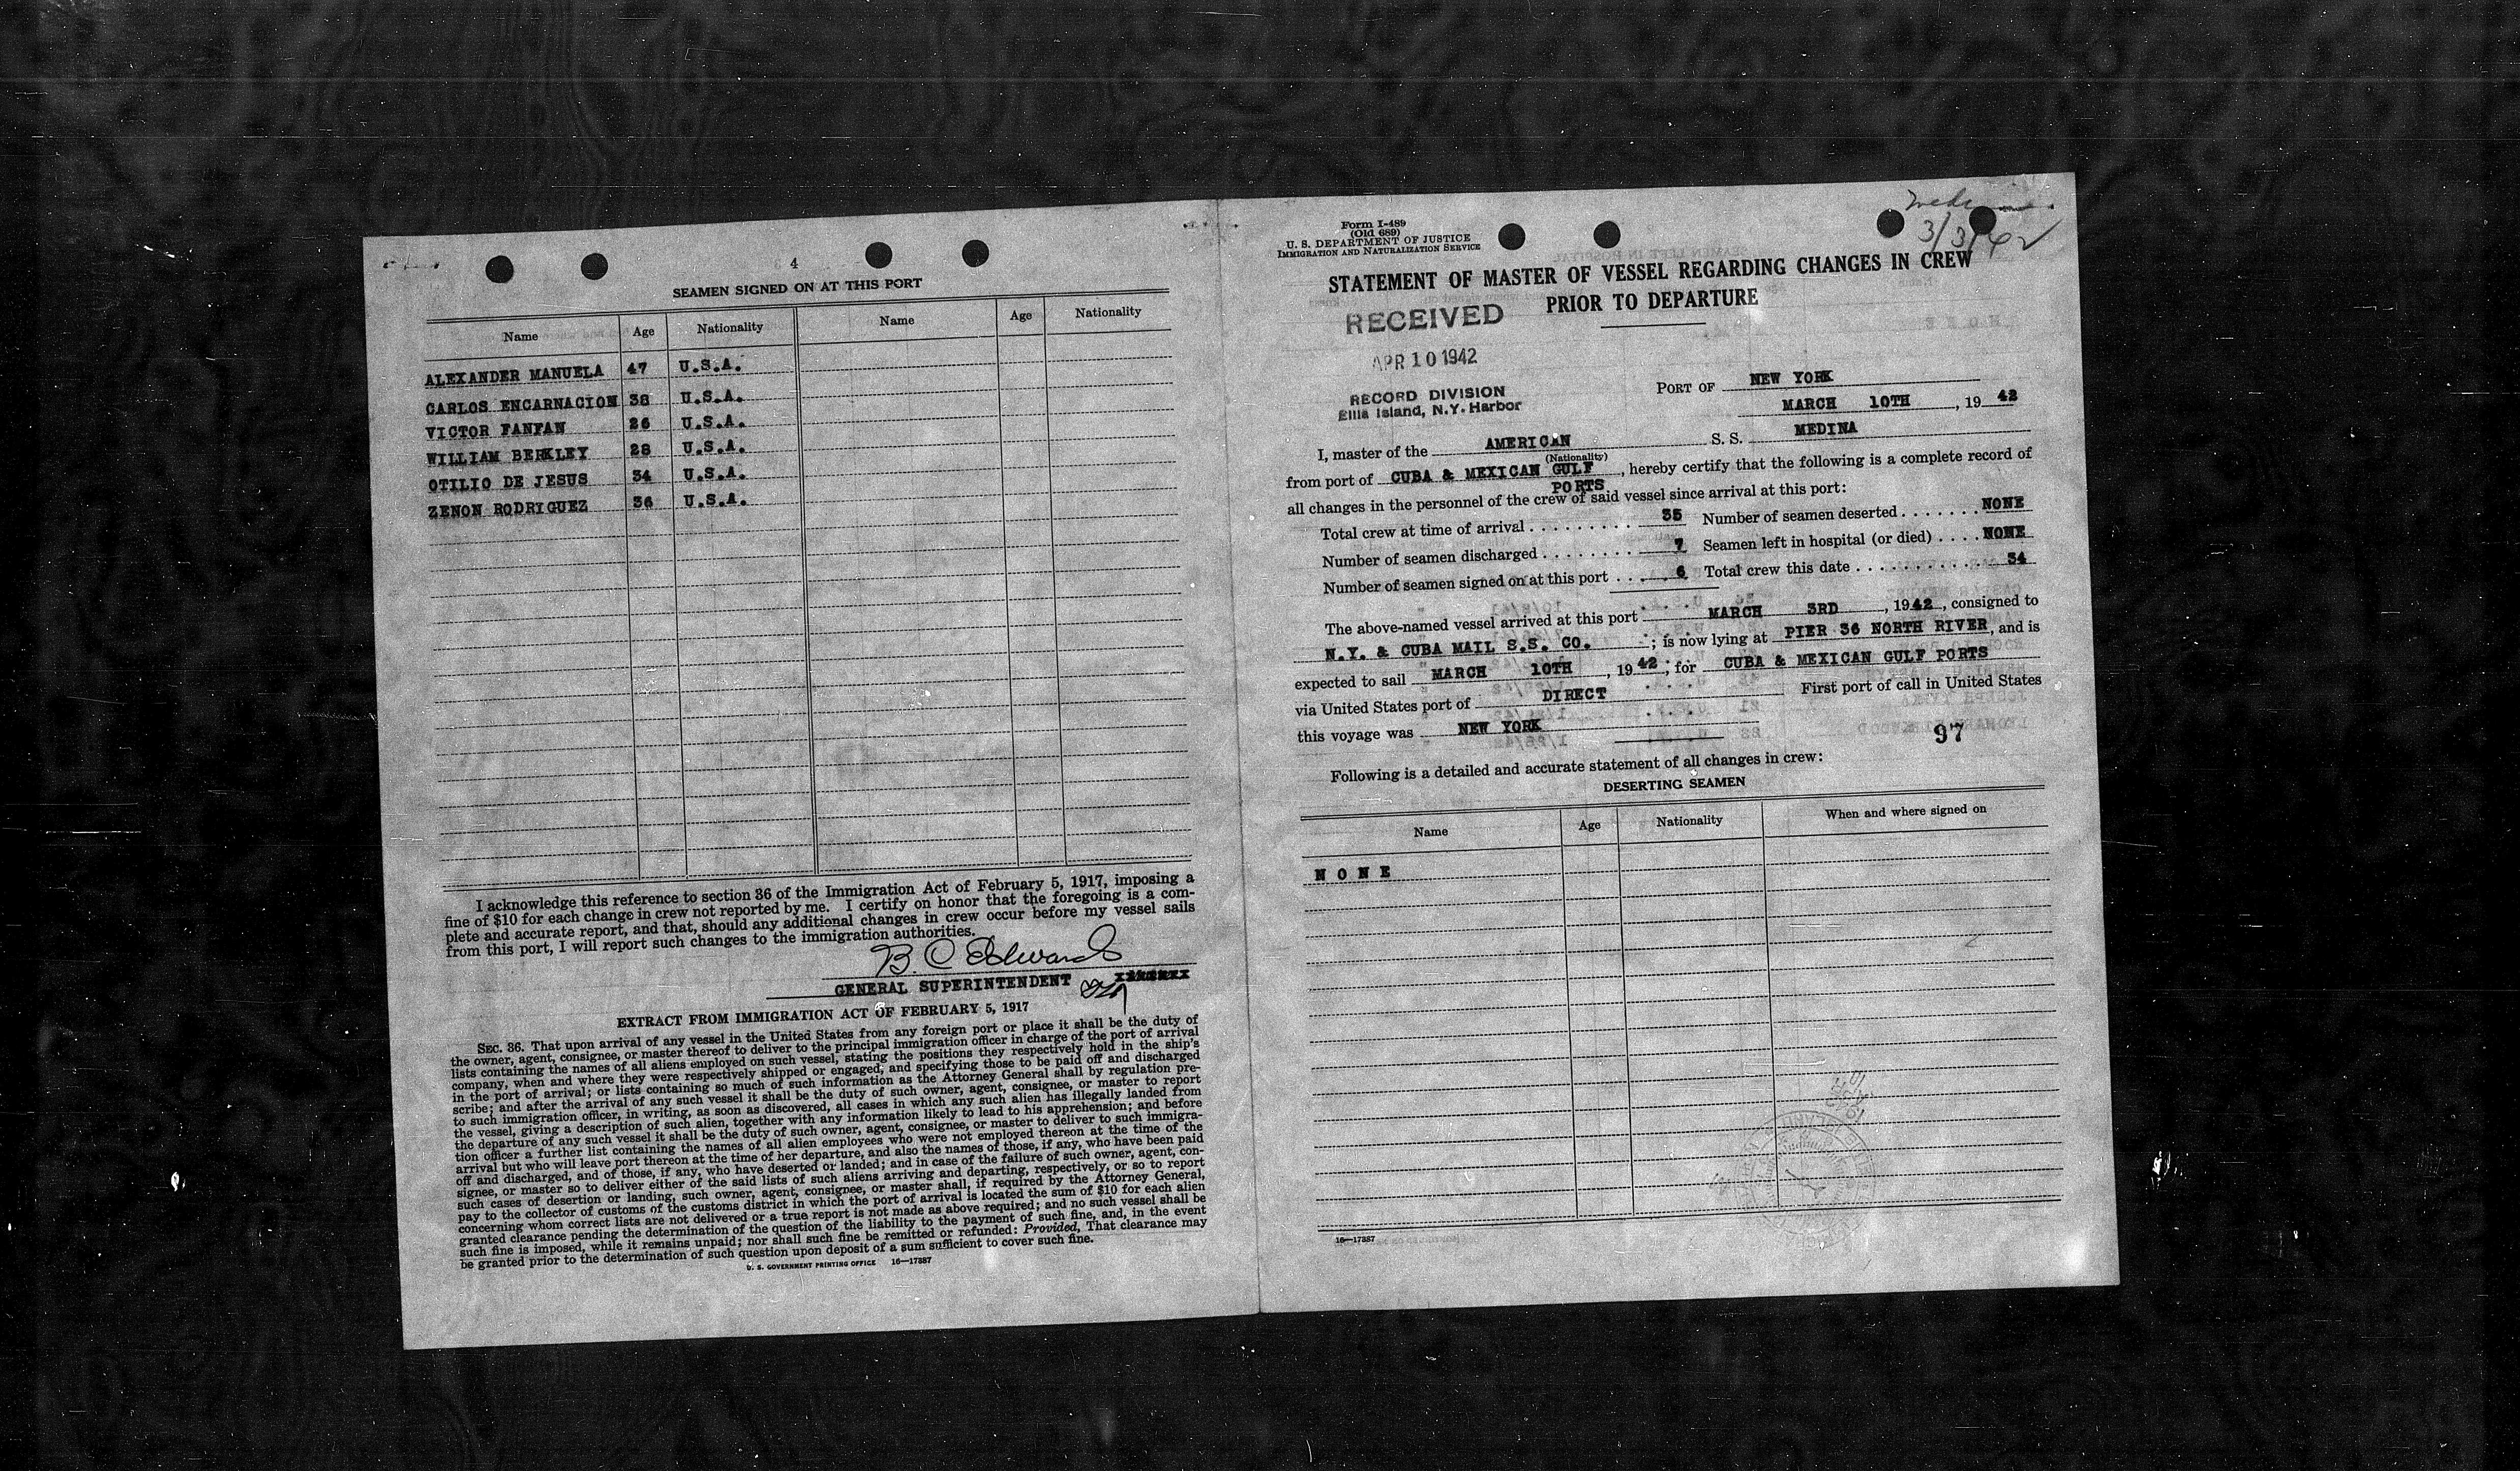 4
SEAMEN SIGNED ON AT THIS PORT
Name Age Nationality Name Age Nationality
ALEXANDER MANUELA 47 U.S.A.
CARLOS ENCARNACION 38 U.S.A.
VICTOR FANFAN 26 U.S.A.
WILLIAM BERKLEY 28 U.S.A.
OTILIO DE JESUS 34 U.S.A.
ZENON RODRIGUEZ 36 U.S.A.
I acknowledge this reference to section 36 of the Immigration Act of February 5, 1917, imposing a
fine of $10 for each change in crew not reported by me. I certify on honor that the foregoing is a com-
plete and accurate report, and that, should any additional changes in crew occur before my vessel sails
from this port, I will report such changes to the immigration authorities.
B. C Edwards
GENERAL SUPERINTENDENT
EXTRACT FROM IMMIGRATION ACT OF FEBRUARY 5, 1917
SEC. 36. That upon arrival of any vessel in the United States from any foreign port or place it shall be the duty of
the owner, agent, consignee, or master thereof to deliver to the principal immigration officer in charge of the port of arrival
lists containing the names of all aliens employed on such vessel, stating the positions they respectively hold in the ship's
company, when and where they were respectively shipped or engaged, and specifying those to be paid off and discharged
in the port of arrival; or lists containing so much of such information as the Attorney General shall by regulation pre-
scribe; and after the arrival of any such vessel it shall be the duty of such owner, agent, consignee, or master to report
to such immigration officer, in writing, as soon as discovered, all cases in which any such alien has illegally landed from
the vessel, giving a description of such alien, together with any information likely to lead to his apprehension; and before
the departure of any such vessel it shall be the duty of such owner, agent, consignee, or master to deliver to such immigra-
tion officer a further list containing the names of all alien employees who were not employed thereon at the time of the
arrival but who will leave port thereon at the time of her departure, and also the names of those, if any, who have been paid
off and discharged, and of those, if any, who have deserted or landed; and in case of the failure of such owner, agent, con-
signee, or master so to deliver either of the said lists of such aliens arriving and departing, respectively, or so to report
such cases of desertion or landing, such owner, agent, consignee, or master shall, if required by the Attorney General,
pay to the collector of customs of the customs district in which the port of arrival is located the sum of $10 for each alien
concerning whom correct lists are not delivered or a true report is not made as above required; and no such vessel shall be
granted clearance pending the determination of the question of the liability to the payment of such fine, and, in the event
such fine is imposed, while it remains unpaid; nor shall such fine be remitted or refunded: Provided, That clearance may
be granted prior to the determination of such question upon deposit of a sum sufficient to cover such fine.
U. S. GOVERNMENT PRINTING OFFICE 16—17387
Form I-489
(Old 689)
U. S. DEPARTMENT OF JUSTICE
IMMIGRATION AND NATURALIZATION SERVICE
3/3/42
STATEMENT OF MASTER OF VESSEL REGARDING CHANGES IN CREW
PRIOR TO DEPARTURE
RECEIVED
APR 10 1942
RECORD DIVISION
Ellis Island, N.Y. Harbor
PORT OF NEW YORK
MARCH 10TH, 1942
I, master of the AMERICAN S. S. MEDINA
(Nationality)
from port of CUBA & MEXICAN GULF PORTS, hereby certify that the following is a complete record of
all changes in the personnel of the crew of said vessel since arrival at this port:
Total crew at time of arrival . . . . . . . . . 35 Number of seamen deserted . . . . . . . NONE
Number of seamen discharged . . . . . . . . 7 Seamen left in hospital (or died) . . . . NONE
Number of seamen signed on at this port . . . . 6 Total crew this date . . . . . . . . . . . . 34
The above-named vessel arrived at this port MARCH 3RD, 1942, consigned to
N.Y. & CUBA MAIL S.S. CO. ; is now lying at PIER 36 NORTH RIVER, and is
expected to sail MARCH 10TH, 1942; for CUBA & MEXICAN GULF PORTS
via United States port of DIRECT First port of call in United States
this voyage was NEW YORK
97
Following is a detailed and accurate statement of all changes in crew:
DESERTING SEAMEN
Name Age Nationality When and where signed on
NONE
16—17387